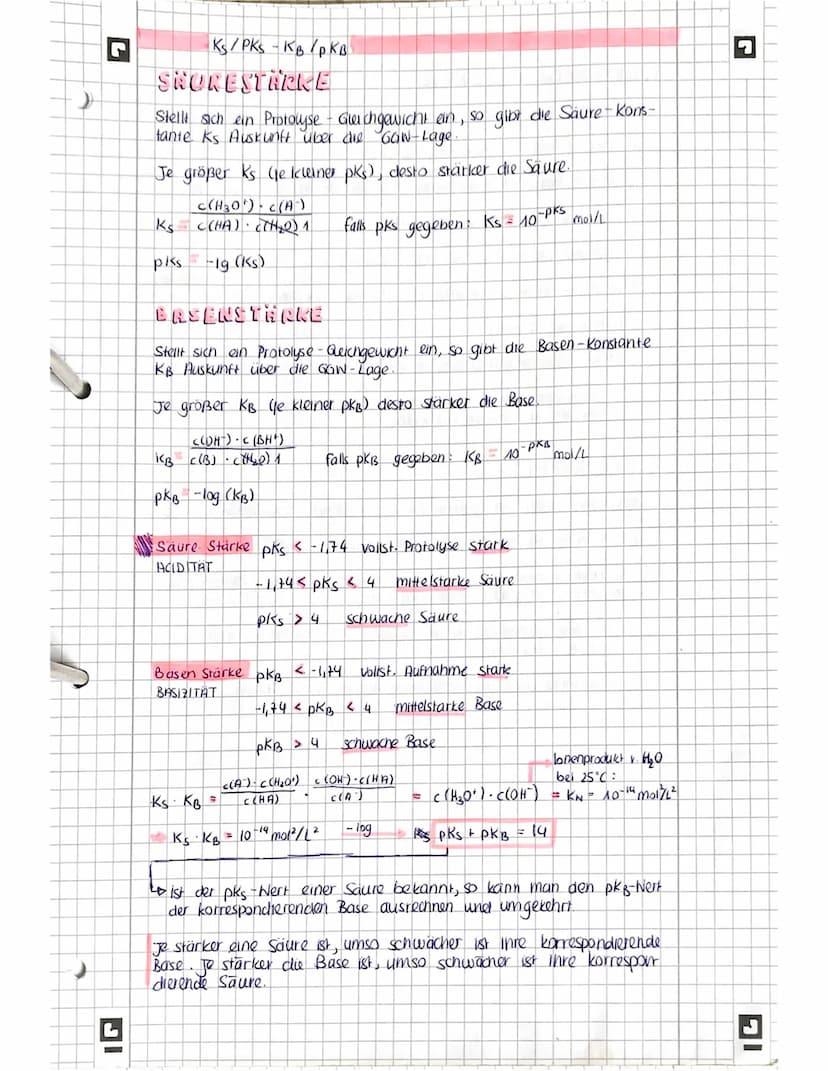 Ks/PKs - KB/pKB
SÄURESTÄRKE
Stellt sich ein Protolyse-Gleichgewicht ein, so gibt die Säure-Kons-
tante Ks Auskunft über die GGW-Lage.
Je größer Ks (je kleiner pKs), desto stärker die Säure.
Ks = c(H3O+) · c(A-) / c(HA) · c(H2O) 1 falls pKs gegeben: Ks = 10^-pKs mol/L
pKs = -lg (Ks)
BASENSTÄRKE
Stellt sich ein Protolyse-Gleichgewicht ein, so gibt die Basen-Konstante
KB Auskunft über die GGW-Lage.
Je größer KB (je kleiner pKB) desto stärker die Base.
KB = c(OH-) · c(BH+) / c(B) · c(H2O) 1 falls pKB gegeben: KB = 10^-pKB mol/L
pKB = -log (KB)
Säure Stärke pKs < -1,74 vollst. Protolyse stark
ACIDITÄT
-1,74 < pKs < 4 mittelstarke Säure
pKs > 4 schwache Säure
Basen Stärke pKB < -1,74 vollst. Aufnahme stark
BASIZITÄT
-1,74 < pKB < 4 mittelstarke Base
pKB > 4 schwache Base
Ionenprodukt v. H2O
bei 25°C:
Ks · KB = c(A-) · c(H3O+) / c(HA) · c(OH-) · c(HA) / c(A-) = c(H3O+) · c(OH-) = KW = 10^-14 mol²/L²
→ Ks · KB = 10^-14 mol²/L² -log → pKs + pKB = 14
↳ Ist der pKs-Wert einer Säure bekannt, so kann man den pKB-Wert
der korrespondierenden Base ausrechnen und umgekehrt.
Je stärker eine Säure ist, umso schwächer ist ihre korrespondierende
Base. Je stärker die Base ist, umso schwächer ist ihre korrespon-
dierende Säure.